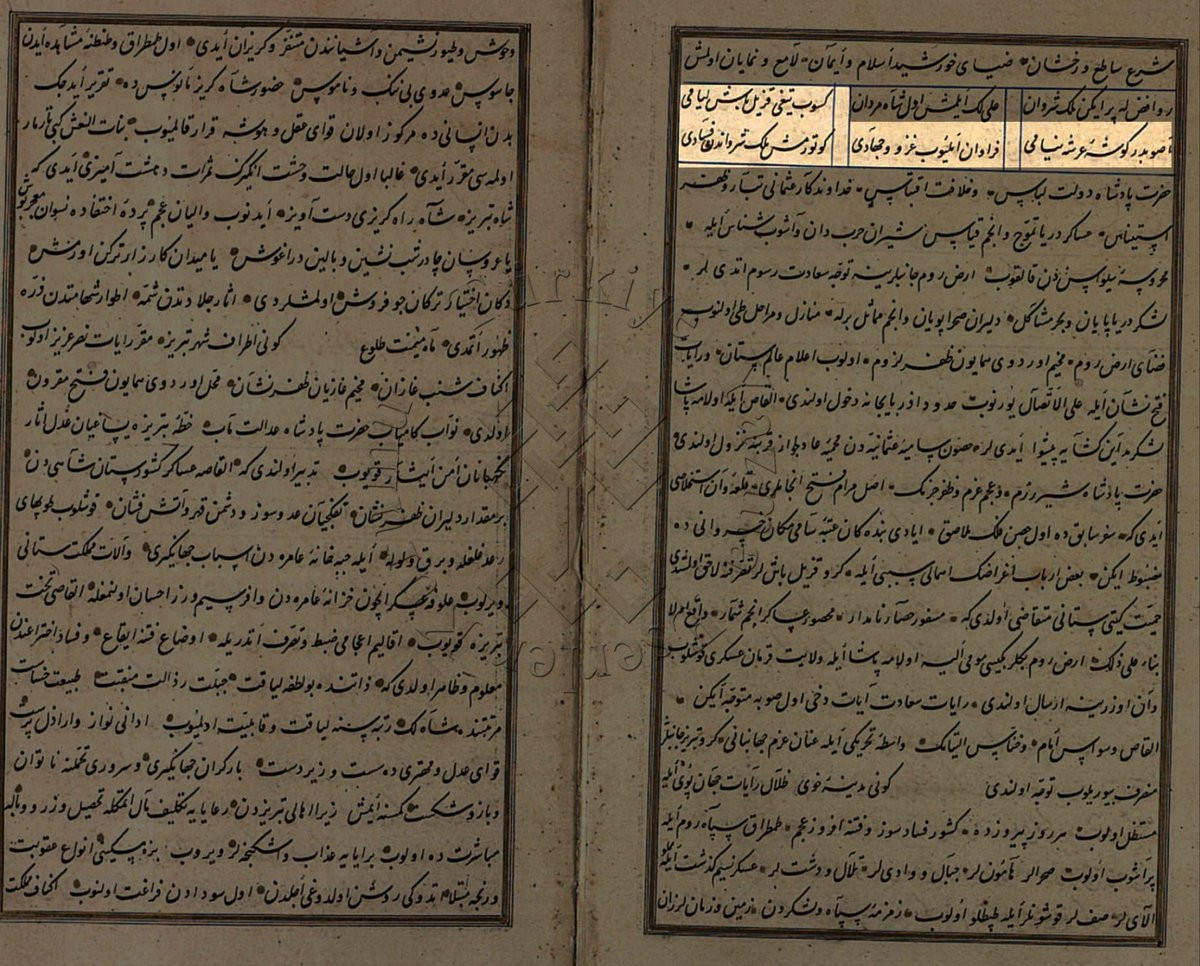 شرع ساطع و رخشان ضیای خورشید اسلام و ایمان لامع و نمایان اولمش
روافض له پر ایکن ملک شروان علی لک ایلمش اول شاه مردان کسوب تیغی قزیل باش لیامی
قاصوبدر کوشهٔ عرشه نیامی فراوان ایلیوب غز و جهادی کوتورمش ملک شرواندن فسادی
حضرت پادشاه دولت لباس و خلافت اقتباس خداوندکار عثمانی تبار و ظفر
استیناس عساکر دریا تموج و انجم قیاس شیران حرب دان و آشوب شناس ایله
محروسهٔ سیواسدن قالقوب ارض روم جانبلرینه توجه سعادت رسوم اتدی لر
لشکر دریا پایان و بحر مشاکل دلیران صحرا پویان و انجم مماثل برله منازل و مراحل طی اولنوب
فضای ارض روم مخیم اوردوی همایون ظفر لزوم اولوب اعلام عالم ستان و رایات
فتح نشان ایله علی الاتصال یورنوب حدود اذربایجانه دخول اولندی القاص ایله اولامه پاشا
لشکر به پیشوا ایدی لر حصون سامیهٔ عثمانیه دن عادلجواز قربنه نزول اولندی
حضرت پادشاه شیر رزم و عجم عزم و ظفر جزمک اصل مرام فتح انجاملری قلعهٔ وان استخلاصی
ایدی که سنهٔ سابق ده اول حصن فلک ملاصق ایادی بنده کان عتبهٔ سامی مکان خسروانی ده
مضبوط ایکن بعض ارباب اغراضک اهمالی سببی ایله کرو قزیل باش لر تصرفنه لاحق اولمشدی
حمیت کیتی ستانی متقاضی اولدی که مسفور حصار نامدار محصور عساکر انجم شمار واقع اهم لا
بناء علی ذلک ارض روم بکلربکیسی مومی الیه اولامه پاشا ایله ولایت قرمان عسکری قوشلوب
وان اوزرینه ارسال اولندی رایات سعادت آیات دخی اول صوبه متوجه ایکن
القاص وسواس ایام و خناس التیامک واسطهٔ تحریکی ایله عنان عزم جهانبانی کرو تبریز جانبنه
منصرف بیوریلوب توجه اولندی کونی مدینهٔ خوی ظلال رایات جهان پوی ایله
مستظل اولوب هر روز پیروزده کشور فساد سوز و فتنه اندوز عجم طمطراق سپاه روم ایله
پر آشوب اولوب صحرالر هامون لر جبال و وادی لر تلال و دشت لر عسکر نسیم کذشت ایله
الای لر صف لر قوشونلر ایله طپطلو اولوب زمزمهٔ سپاه و لشکردن زمین و زمان لرزان
وحوش و طیور نشیمن و اشیانندن متنفر و کریزان ایدی اول طمطراق و طنطنه مشاهده ایدن
جاسوس عدوی بی ننک و ناموس حضور شاه کریز نانوس ده تقریر ایدیجک
بدن انسانی ده مرکوز اولان قوای عقل و هوشه قرار قالمیوب بنات النعش کبی تارمار
اولمه سی مقرر ایدی غالبا اول حالت وحشت انکیزک ثمرات دهشت آمیزی ایدی که
شاه تبریز شاه راه کریزی دست آویز ایدنوب والیان عجم پردهٔ اختفاده نسوان محجوب
یا عروسان چادر شب نشین و بالین در اغوش یا میدان کارزار ترکن اورمش
دکان اختیار ترکان جو فروش اولمشلردی اثار جلادتدن شمه اطوار شهامتدن ذره
ظهور اتمدی ماه میمنت طلوع کونی اطراف شهر تبریز مقر رایات نصر عزیز اولوب
اکناف شنب غازان مخیم غازیان ظفر نشان محل اوردوی همایون فتح مقرون
اولدی نواب کامیاب حضرت پادشاه عدالت مآب خطهٔ تبریزه یساغیان عدل اثار
نکهبانان امن ایثار قویوب تدبیر اولندی که القاصه عساکر کشورستان شاهی دن
بر مقدار دلیران ظفر نشان تفنکچیان عدو سوز و دشمن قهر و آتش فشان قوشلوب طوپهای
رعد غلغله و برق ولوله ایله جبه خانهٔ عامره دن اسباب جهانکیری و آلات مملکت ستانی
ویرلوب علوفهٔ لشکر ایچون خزانهٔ عامره دن وافر سیم و زر احسان اولنمغله القاصی تخت
تبریزه قویوب اقالیم اعجامی ضبط و تصرف اتدریله اوضاع فتنه ایقاع و فساد اختراعندن
معلوم و ظاهر اولدی که ذاتنده بو لطفه لیاقت جبلت رذالت منقبت طبیعت خساست
مرتبتنده شاه لک رتبه سنه لیاقت و قابلیت اولمیوب ادانی نواز و اراذل پرست
قوای عدل و مهتری ده سست و زیر دست بارکران جهانکیری و سروری تحملنه ناتوان
و بازو شکسته کمسنه ایمش زیرا اهالی تبریزدن رعایایه تکلیف مال اتمکله تحصیل زر و ماله
مباشرت ده اولوب برایایه عذاب و اشکنجه لر ویروب بزم سیکیی انواع عقوبت
و رنجه مبتلا اتدوکی روشن اولدوغی اجلدن اول سودادن فراغت اولنوب اکناف مملکت